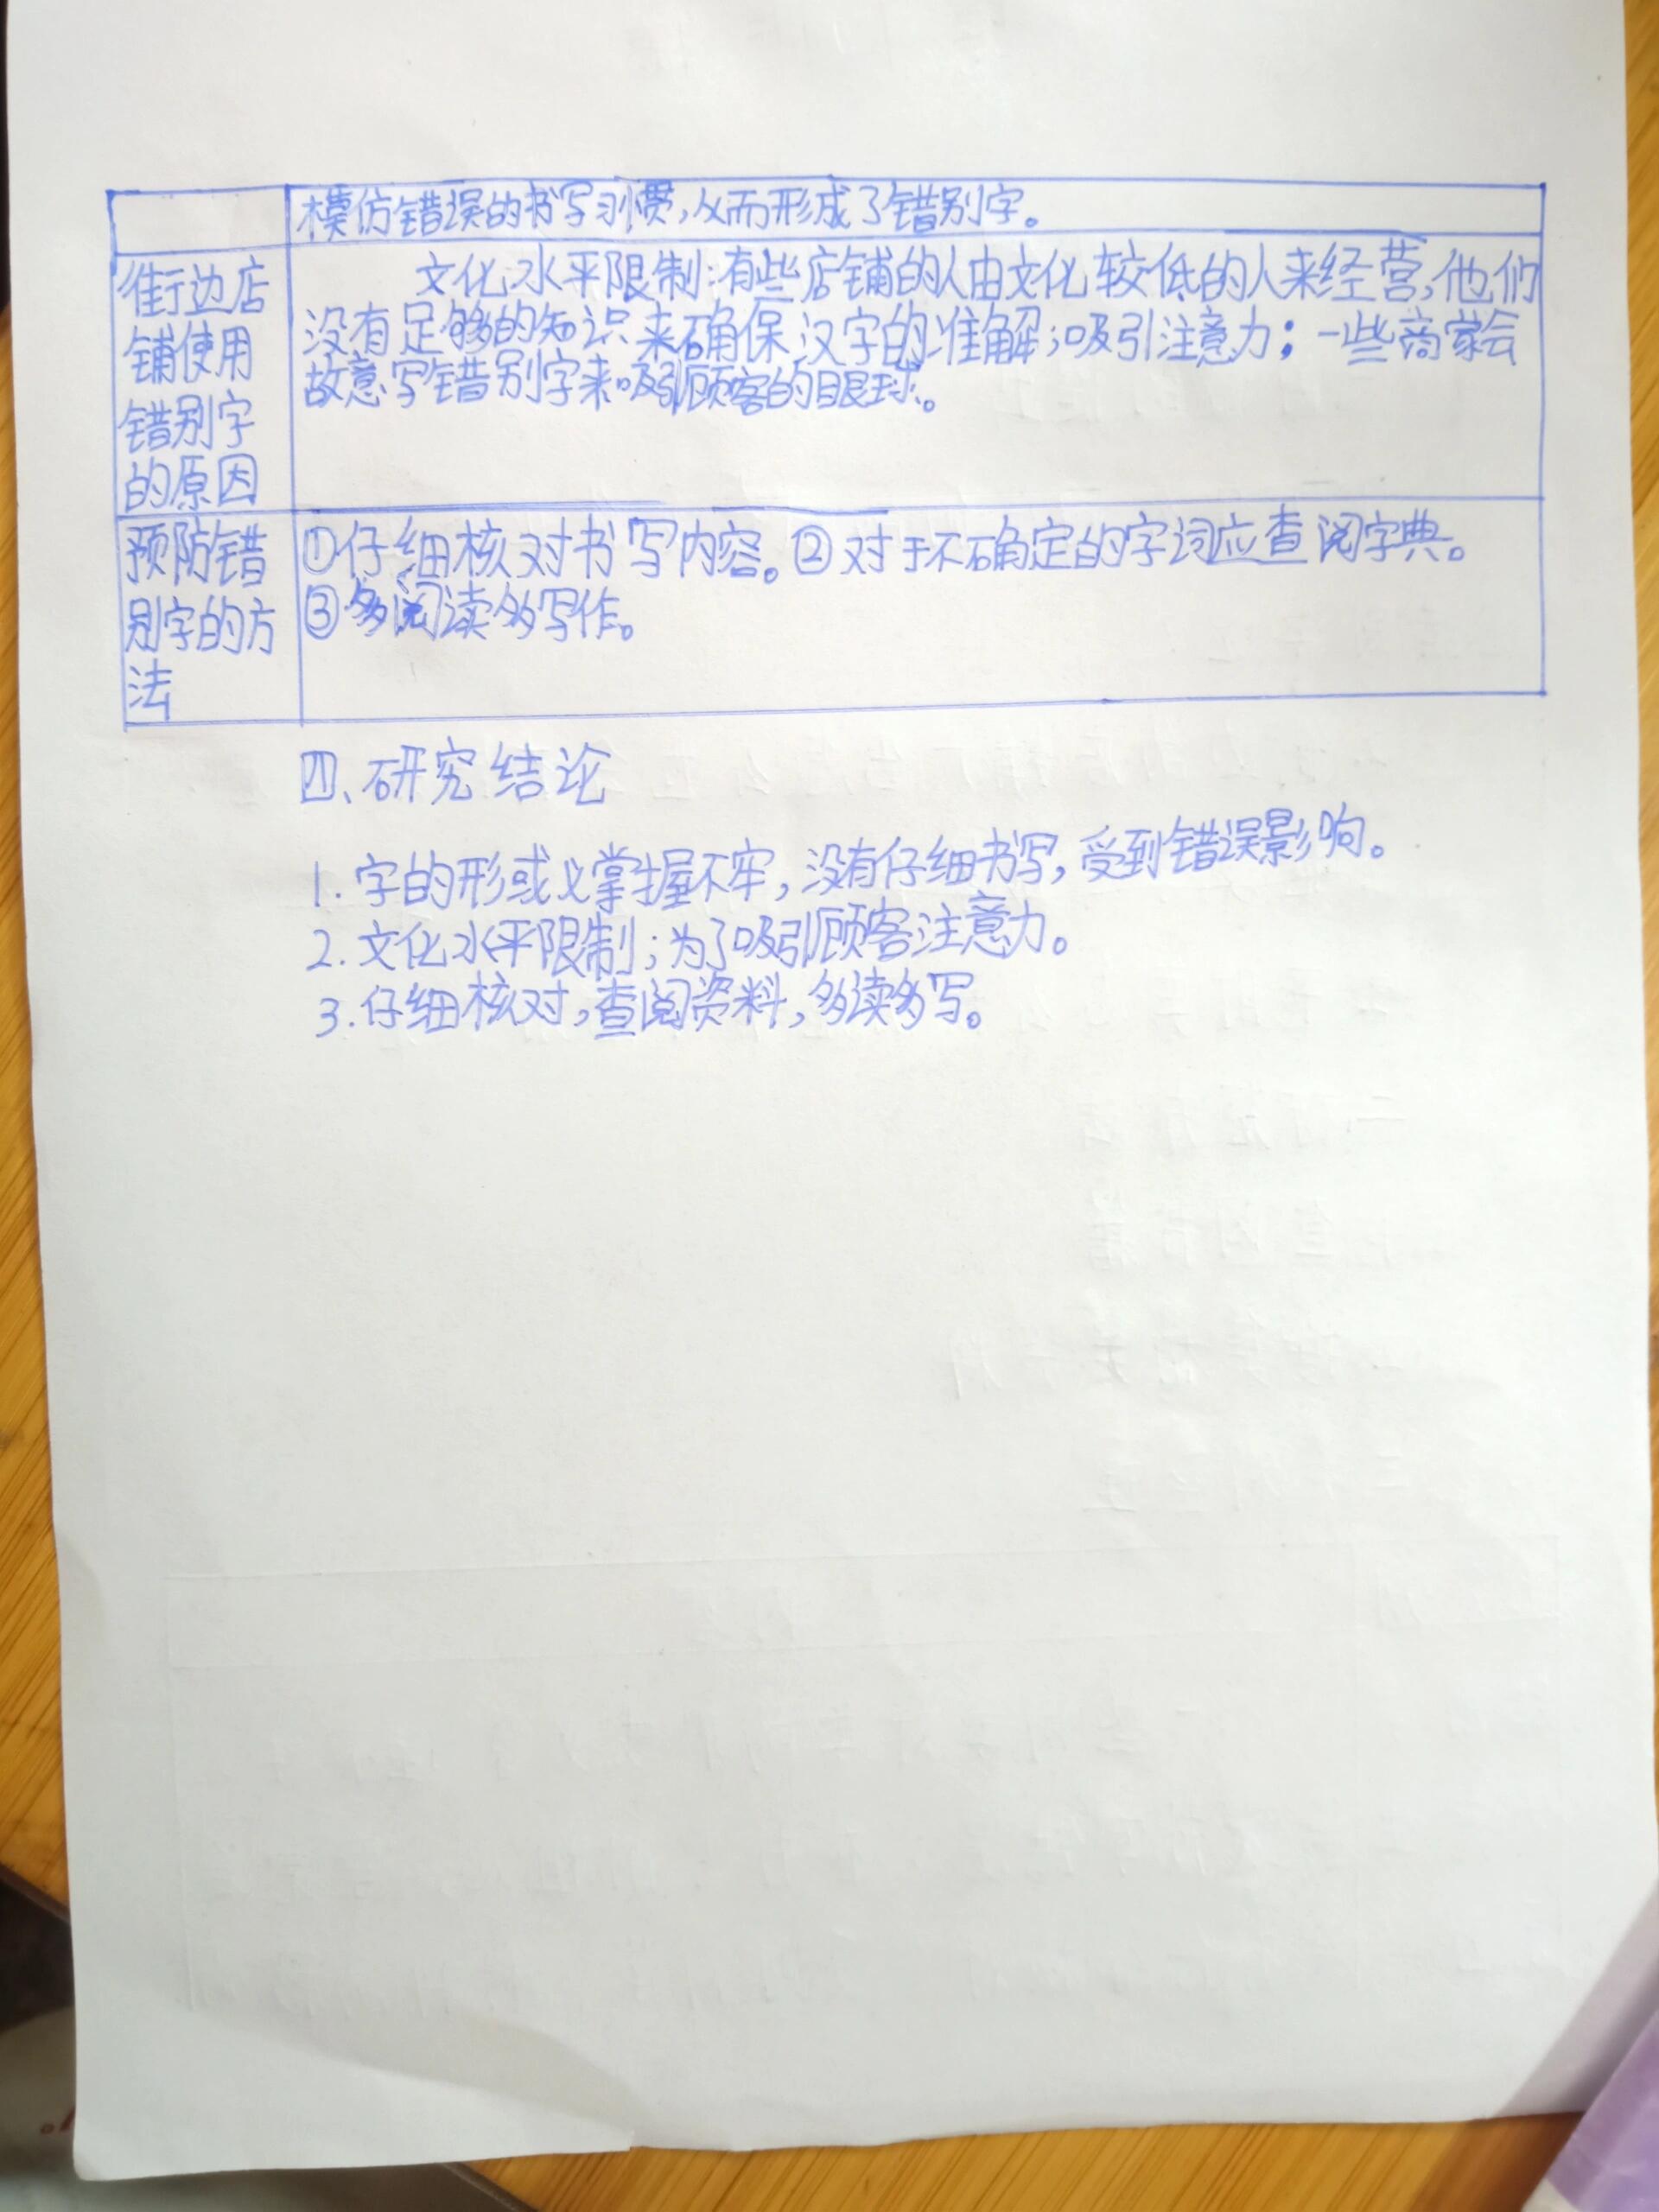 模仿错误的书写习惯，从而形成了错别字。
街边店
铺使用
错别字
的原因
文化水平限制：有些店铺的人由文化较低的人来经营，他们
没有足够的知识来确保汉字的准解；吸引注意力：一些商家会
故意写错别字来吸引顾客的眼球。
预防错
别字的方
法
①仔细核对书写内容。②对于不确定的字词应查阅字典。
③多阅读多写作。
四、研究结论
1. 字的形或义掌握不牢，没有仔细书写，受到错误影响。
2. 文化水平限制；为了吸引顾客注意力。
3. 仔细核对，查阅资料，多读多写。